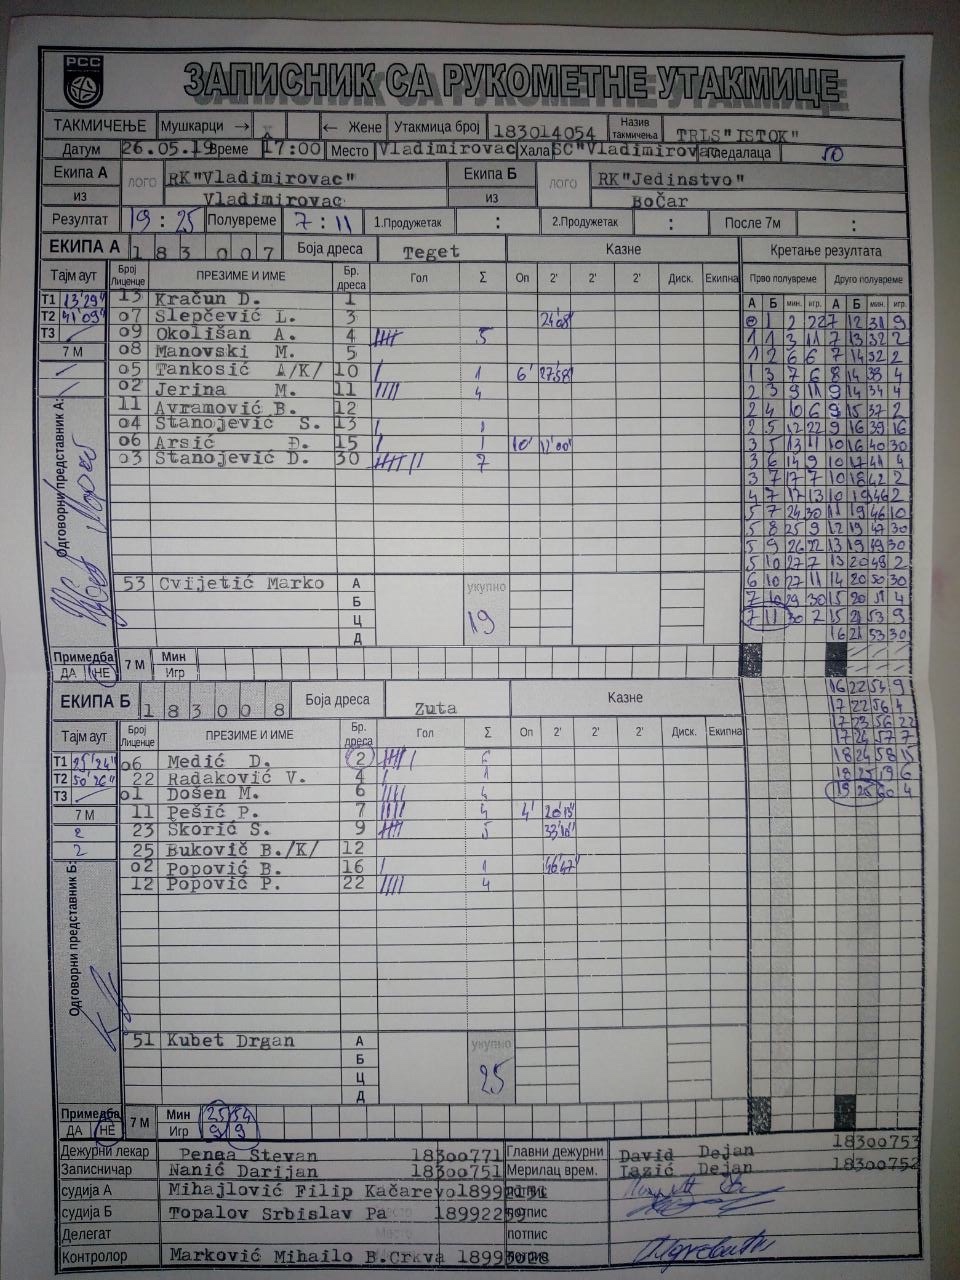 РСС
ЗАПИСНИК СА РУКОМЕТНЕ УТАКМИЦЕ
ТАКМИЧЕЊЕ Мушкарци → X ← Жене Утакмица број 183014054 Назив такмичења TRLS"ISTOK"
Датум 26.05.19 Време 17:00 Место Vladimirovac Хала SC"Vladimirovac Гледалаца 50
Екипа А лого RK"Vladimirovac" Екипа Б лого RK"Jedinstvo"
из Vladimirovac из BoČar
Резултат 19 : 25 Полувреме 7 : 11 1.Продужетак : 2.Продужетак : После 7м :
ЕКИПА А 1 8 3 0 0 7 Боја дреса Teget Казне Кретање резултата
Тајм аут Број Лиценце ПРЕЗИМЕ И ИМЕ Бр. дреса Гол Σ Оп 2' 2' 2' Диск. Екипна Прво полувреме Друго полувреме
А Б мин. игр. А Б мин. игр.
Т1 13'29" 13 Kračun D. 1
Т2 41'09" 07 Slepčević L. 3 24'08"
Т3 09 Okolišan A. 4 5
7 М 08 Manovski M. 5
05 Tankosić A/K/ 10 1 6' 27'58"
02 Jerina M. 11 4
11 Avramović B. 12
04 Stanojević S. 13 1
06 Arsić D. 15 1 10' 17'00"
03 Stanojević D. 30 7
Одговорни представник А:
53 Cvijetić Marko А укупно
Б 19
Ц
Д
1 2 22 7 12 31 9
1 1 3 11 7 13 32 2
1 2 6 6 7 14 32 2
1 3 7 6 8 14 38 4
2 3 9 11 9 14 34 4
2 4 10 6 9 15 37 2
2 5 12 22 9 16 39 16
3 5 13 11 10 16 40 30
3 6 14 9 10 17 41 4
3 7 17 7 10 18 42 2
4 7 17 13 10 19 46 2
5 7 24 30 11 19 46 10
5 8 25 9 12 19 47 30
5 9 26 22 13 19 49 30
5 10 27 7 13 20 49 2
6 10 27 11 14 20 50 30
7 10 29 30 15 20 51 4
7 11 30 2 15 21 53 9
16 21 53 30
Примедба ДА НЕ 7 М Мин
Игр
16 22 54 9
17 22 56 4
17 23 56 22
17 24 57 7
18 24 58 15
18 25 59 6
19 25 60 4
ЕКИПА Б 1 8 3 0 0 8 Боја дреса Zuta Казне
Тајм аут Број Лиценце ПРЕЗИМЕ И ИМЕ Бр. дреса Гол Σ Оп 2' 2' 2' Диск. Екипна
Т1 25'24" 06 Medić D. 2 6
Т2 50'26" 22 Radaković V. 4 1
Т3 01 Došen M. 6 4
7 М 11 Pešić P. 7 4 4' 20'13"
2 23 Škorić S. 9 5 33'10"
2 25 Buković B./K/ 12
02 Popović B. 16 1 46'47"
12 Popović P. 22 4
Одговорни представник Б:
51 Kubet Drgan А укупно
Б 25
Ц
Д
Примедба 7 М Мин 25 54
ДА НЕ Игр 9 9
Дежурни лекар Penea Stevan 18300771 Главни дежурни David Dejan 18300753
Записничар Nanić Darijan 18300751 Мерилац врем. Lazić Dejan 18300752
судија А Mihajlović Filip Kačarevo
судија Б Topalov Srbislav Pa 18992259 потпис
Делегат Место потпис
Контролор Marković Mihailo B.Crkva 18993028 потпис